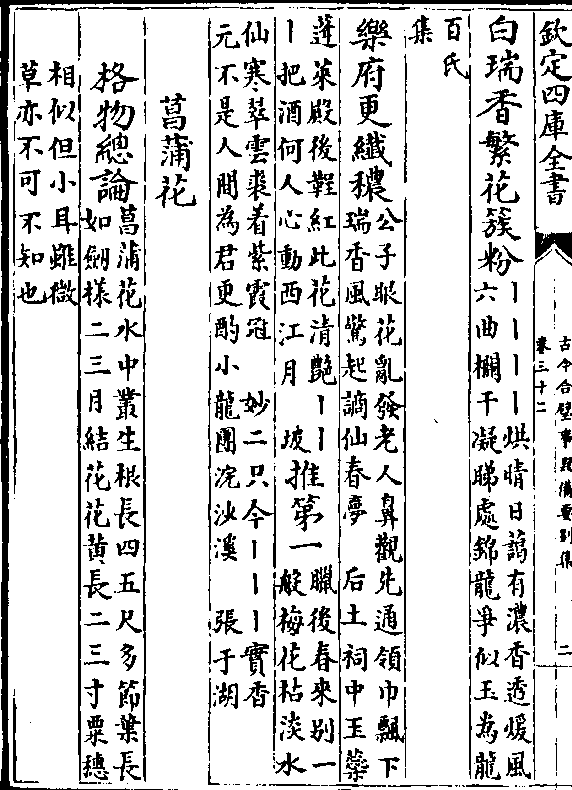 欽定四庫全書
古今合璧事類備要別集
卷三十二
二
白瑞香繁花簇粉丨丨丨丨烘晴日藹有濃香透煖風
六曲欄干凝睇處錦龍爭似玉為龍
百氏
集
樂府更纖穠公子眼花亂發老人鼻觀先通領巾飄下
瑞香風驚起謫仙春夢 后土祠中玉蘂
蓬萊殿後鞓紅此花清艶丨丨
丨把酒何人心動西江月 坡
推第一臘後春來別一
般梅花枯淡水
仙寒翠雲裘着紫霞冠 妙二只今丨丨丨實香
元不是人間為君更酌小龍團浣沙溪 張于湖
菖蒲花
格物總論菖蒲花水中叢生根長四五尺多節葉長
如劒樣二三月結花花黄長二三寸粟穗
相似但小耳雖微
草亦不可不知也